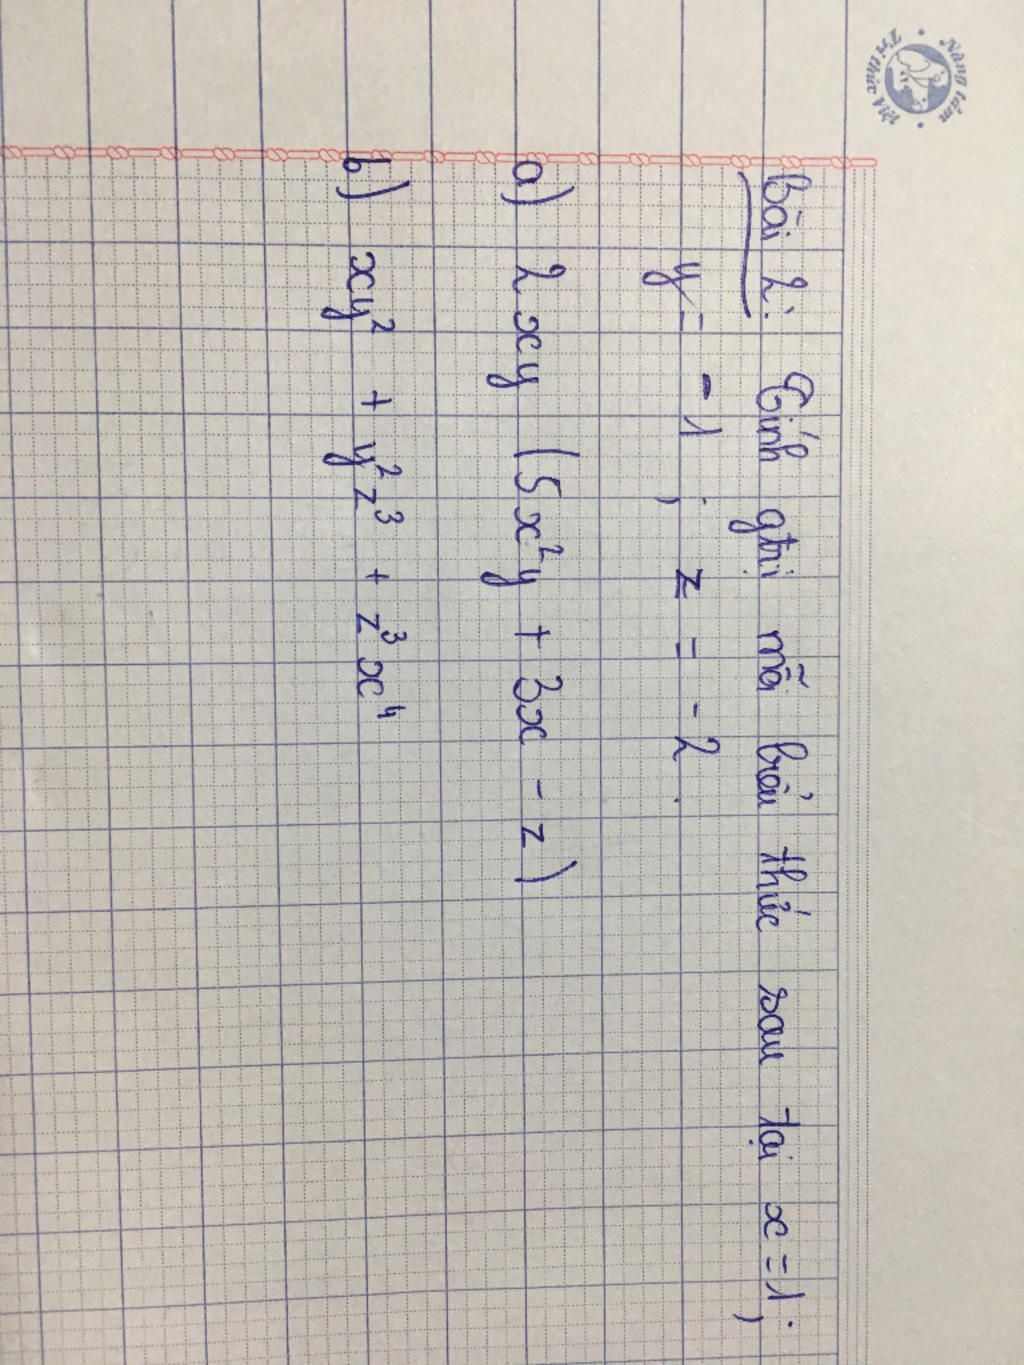 Nâng tầm
Tri thức Việt
Bài 2: Tính gtrị mỗi biểu thức sau tại x = 1;
y = -1; z = -2.
a) 2xy (5x²y + 3x - z)
b) xy² + y²z³ + z³x⁴